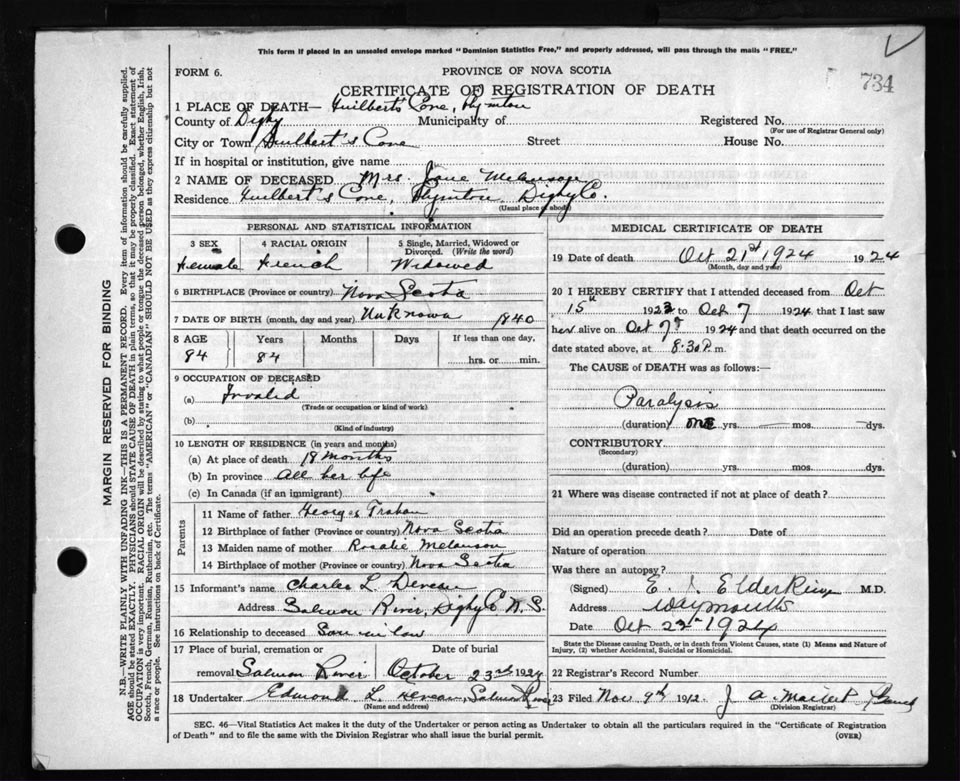 This form if placed in an unsealed envelope marked "Dominion Statistics Free," and properly addressed, will pass through the mails "FREE."
FORM 6.
PROVINCE OF NOVA SCOTIA
734
CERTIFICATE OF REGISTRATION OF DEATH
1 PLACE OF DEATH— Guilbert's Cove, Plymton
County of Digby Municipality of Registered No.
(For use of Registrar General only)
City or Town Guilbert's Cove Street House No.
If in hospital or institution, give name
2 NAME OF DECEASED Mrs. Jane Melanson
Residence Guilbert's Cove, Plymton, Digby Co.
(Usual place of abode)
PERSONAL AND STATISTICAL INFORMATION
3 SEX
Female
4 RACIAL ORIGIN
French
5 Single, Married, Widowed or Divorced. (Write the word)
Widowed
6 BIRTHPLACE (Province or country) Nova Scotia
7 DATE OF BIRTH (month, day and year) Unknown 1840
8 AGE Years Months Days If less than one day,
84 84 hrs. or min.
9 OCCUPATION OF DECEASED
(a) Invalid
(Trade or occupation or kind of work)
(b)
(Kind of industry)
10 LENGTH OF RESIDENCE (in years and months)
(a) At place of death 18 months
(b) In province All her life
(c) In Canada (if an immigrant)
Parents
11 Name of father George Trahan
12 Birthplace of father (Province or country) Nova Scotia
13 Maiden name of mother Rosalie Melanson
14 Birthplace of mother (Province or country) Nova Scotia
15 Informant's name Charles L. Deveau
Address Salmon River, Digby Co N.S.
16 Relationship to deceased Son in law
17 Place of burial, cremation or removal Salmon River
Date of burial
October 23rd 1924
18 Undertaker Edmond L. Deveau, Salmon River
(Name and address)
MEDICAL CERTIFICATE OF DEATH
19 Date of death Oct 21st 1924 1924
(Month, day and year)
20 I HEREBY CERTIFY that I attended deceased from Oct
15th 1923 to Oct 7 1924 that I last saw
her alive on Oct 7th 1924 and that death occurred on
date stated above, at 8.30 P.m.
The CAUSE of DEATH was as follows:—
Paralysis
(duration) one yrs. — mos. — dys.
CONTRIBUTORY
(Secondary)
(duration) yrs. mos. dys.
21 Where was disease contracted if not at place of death?
Did an operation precede death? Date of
Nature of operation
Was there an autopsy?
(Signed) E. J. Elderkin M.D.
Address Weymouth
Date Oct 22nd 1924
State the Disease causing Death, or in death from Violent Causes, state (1) Means and Nature of Injury, (2) whether Accidental, Suicidal or Homicidal.
22 Registrar's Record Number
23 Filed Nov 9th 1912. J A. Maillet
(Division Registrar)
SEC. 46—Vital Statistics Act makes it the duty of the Undertaker or person acting as Undertaker to obtain all the particulars required in the "Certificate of Registration
of Death" and to file the same with the Division Registrar who shall issue the burial permit.
(OVER)
MARGIN RESERVED FOR BINDING
N.B.—WRITE PLAINLY WITH UNFADING INK—THIS IS A PERMANENT RECORD. Every item of information should be carefully supplied.
AGE should be stated EXACTLY. PHYSICIANS should STATE CAUSE OF DEATH in plain terms, so that it may be properly classified. Exact statement of
OCCUPATION is very important. RACIAL ORIGIN will be described by stating to what people or tongue the deceased person belonged, whether English, Irish,
Scotch, French, German, Russian, Ruthenian, etc. The terms "AMERICAN" or "CANADIAN" SHOULD NOT BE USED as they express citizenship but not
a race or people. See instructions on back of Certificate.